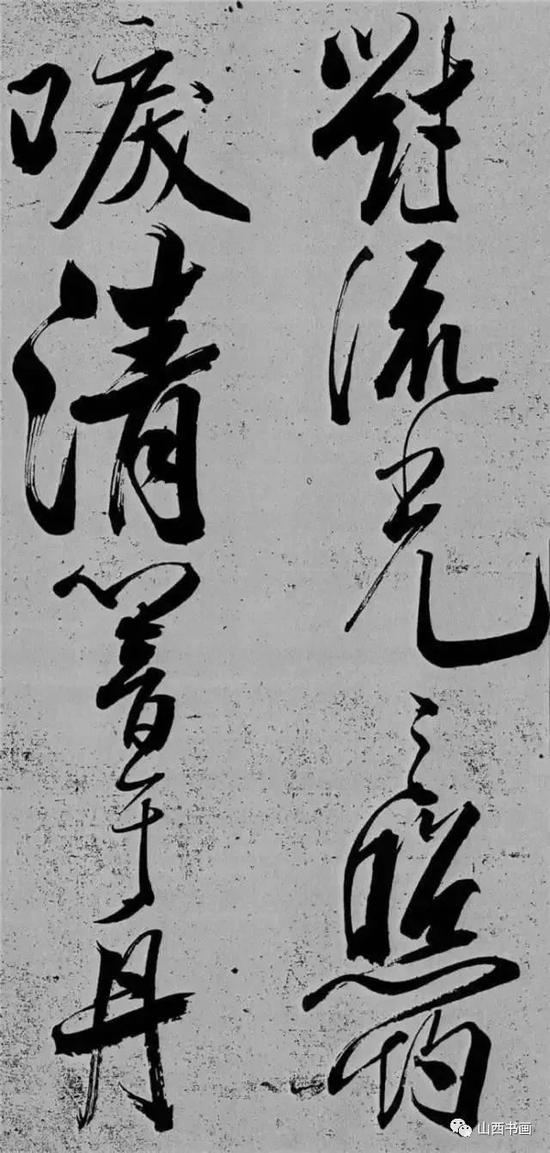 對流光之照灼
唳清響于丹
山西书画